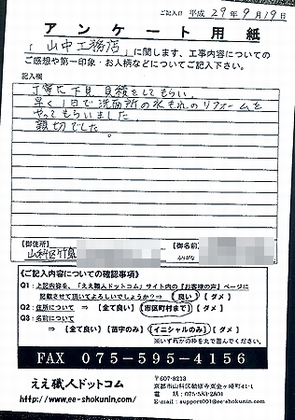 ご記入日 平成 29年 9月19日
アンケート用紙
「山中工務店」に関します、工事内容についての
ご感想や第一印象・お人柄などについてご記入下さい。
記入欄
丁寧に下見、見積をしてもらい、
早く1日で洗面所の水もれのリフォームを
やってもらいました
親切でした。
【御住所】
【御名前】
山科区竹鼻
(ご記入内容についての確認事項)
Q1:上記内容を、「ええ職人ドットコム」サイト内の【お客様の声】ページに
記載させて頂いてよろしいでしょうか?⇒ 【良い】 【ダメ】
Q2:住所について ⇒ 【全て良い】 【市区町村まで】 【ダメ】
Q3:名前について
⇒ 【全て良い】 【苗字のみ】 【イニシャルのみ】 【ダメ】
※いずれかの枠を丸で囲んでください。
FAX 075-595-4156
ええ職人ドットコム
http://www.ee-shokunin.com/
〒607-8213
TEL: 075-583-2801
E-mail:support001@ee-shokunin.com